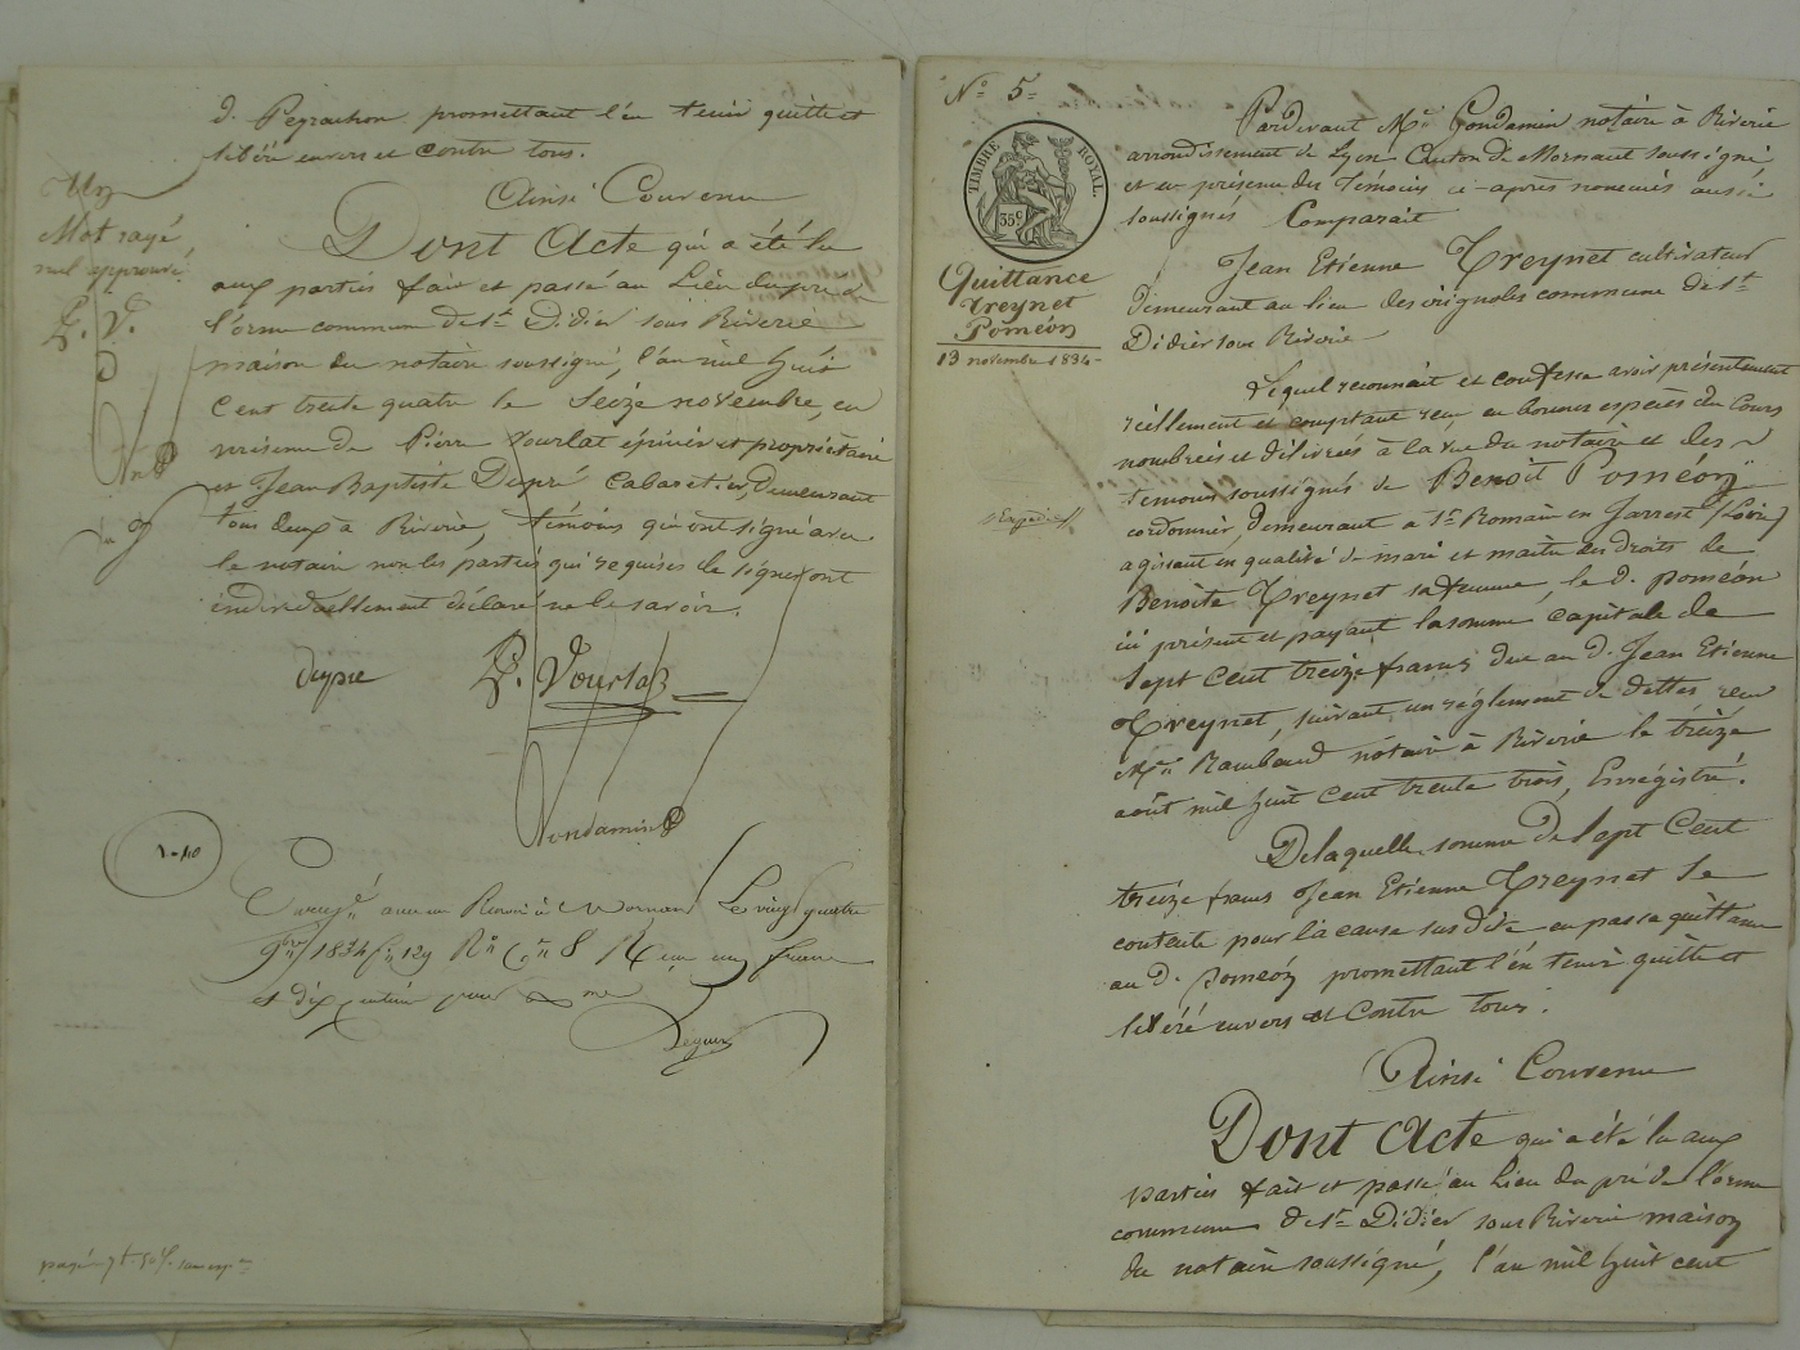 d. Peyrachon promettant l'en tenir quitte et
libéré envers et contre tous.
Ainsi Convenu
Un
Mot rayé,
nul approuvé
P. V.
D
Dont Acte qui a été lu
aux parties fait et passé au Lieu du pré de
l'orme commune de St Didier sous Riverie
maison du notaire soussigné, l'an mil huit
cent trente quatre le seize novembre, en
présence de Pierre Vourlat épicier et propriétaire
et Jean Baptiste Dupré Cabaretier, Demeurant
tous deux à Riverie, témoins qui ont signé avec
le notaire non les parties qui requises de signer ont
individuellement déclaré ne le savoir.
dupre P. Vourlat
Gondamin
1-10
Enregé avec un Renvoi à Mornant Le vingt quatre
9bre 1834 fo 129 Ro Ce 8 Reçu un franc
et dix centimes pour
payé 7f. 50c.
No 5
TIMBRE ROYAL.
35c
Quittance
Treynet
Poméon
13 novembre 1834
Expédié
Pardevant Me Gondamin notaire à Riverie
arrondissement de Lyon Canton de Mornant soussigné
et en présence des Témoins ci-après nommés aussi
soussignés Comparait
Jean Etienne Treynet cultivateur
demeurant au lieu des commune de St
Didier sous Riverie
Lequel reconnait et confesse avoir présentement
réellement et comptant reçu en bonnes espèces du Cours
nombrées et délivrées à la vue du notaire et des
témoins soussignés de Benoit Poméon
cordonnier, demeurant à St Romain en Jarrest (Loire)
agissant en qualité de mari et maitre des droits de
Benoite Treynet sa femme, le d. poméon
ici présent et payant la somme capitale de
sept cent treize francs due au d. Jean Etienne
Treynet, suivant un réglement de dettes reçu
Me Rambaud notaire à Riverie le treize
août mil huit cent trente trois, Enrégistré.
De laquelle somme de sept cent
treize francs Jean Etienne Treynet se
contente pour la cause sus dite en passe quittance
au d. poméon promettant l'en tenir quitte et
libéré envers et contre tous.
Ainsi Convenu
Dont Acte qui a été lu aux
parties fait et passé au Lieu du pré de l'orme
commune de St Didier sous Riverie maison
du notaire soussigné, l'an mil huit cent